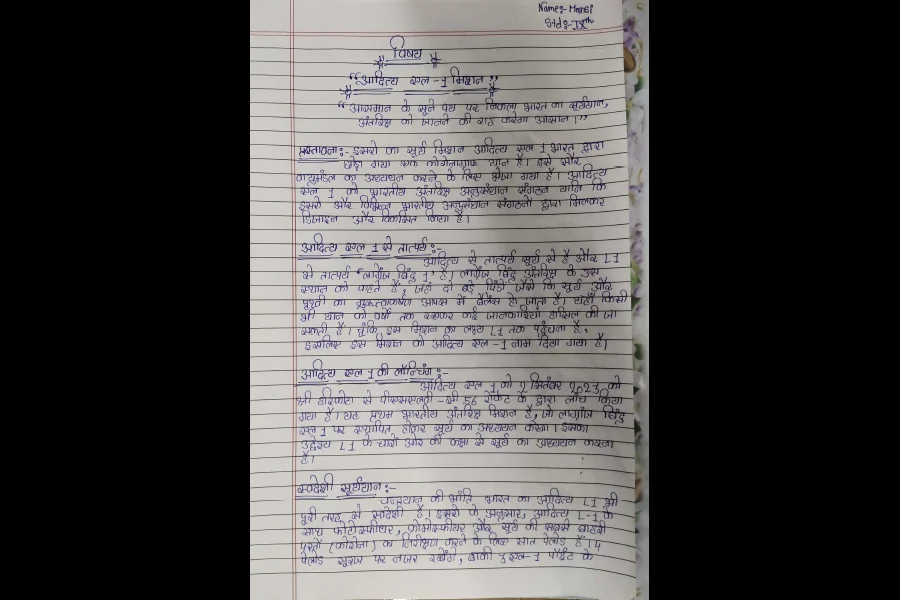 Name:- Mansi
Std:- IXth
विषय
"आदित्य एल-1 मिशन"
"आसमान के सूने पथ पर निकला भारत का सूर्ययान,
अंतरिक्ष को जानने की राह करना आसान।"
प्रस्तावना:- इसरो का सूर्य मिशन आदित्य एल 1 भारत द्वारा
छोड़ा गया एक कोरोनाग्राफ यान है। इसे सौर
वायुमंडल का अध्ययन करने के लिए भेजा गया है। आदित्य
एल 1 को भारतीय अंतरिक्ष अनुसंधान संगठन यानि कि
इसरो और विभिन्न भारतीय अनुसंधान संगठनों द्वारा मिलकर
डिजाइन और विकसित किया है।
आदित्य एल 1 से तात्पर्य:-
आदित्य से तात्पर्य सूर्य से है और L1
से तात्पर्य 'लाग्रेंज बिंदु 1' है। लाग्रेंज बिंदु अंतरिक्ष के उस
स्थान को कहते हैं, जहां दो बड़े पिंडों जैसे कि सूर्य और
पृथ्वी का गुरुत्वाकर्षण आपस में बैलेंस हो जाता है। यहाँ किसी
भी यान को वर्षों तक रखकर कई जानकारियां हासिल की जा
सकती हैं। चूंकि, इस मिशन का लक्ष्य L1 तक पहुंचना है,
इसलिए इस मिशन को आदित्य एल-1 नाम दिया गया है।
आदित्य एल 1 की लॉन्चिंग:-
आदित्य एल 1 को 2 सितंबर 2023 को
श्री हरिकोटा से पीएसएलवी-सी 56 रॉकेट के द्वारा लांच किया
गया है। यह प्रथम भारतीय अंतरिक्ष मिशन है, जो लाग्रेंज बिंदु
एल 1 पर स्थापित होकर सूर्य का अध्ययन करेगा। इसका
उद्देश्य L1 के चारों ओर की कक्षा से सूर्य का अध्ययन करना
है।
स्वदेशी सूर्ययान:-
चन्द्रयान की भांति भारत का आदित्य L1 भी
पूरी तरह से स्वदेशी है। इसरो के अनुसार, आदित्य L-1 के
साथ फोटोस्फीयर, क्रोमोस्फीयर और सूर्य की सबसे बाहरी
परतों (कोरोना) का निरीक्षण करने के लिए सात पेलोड हैं। 4
पेलोड सूरज पर नजर रखेंगे, बाकी 3 एल-1 पॉइंट के